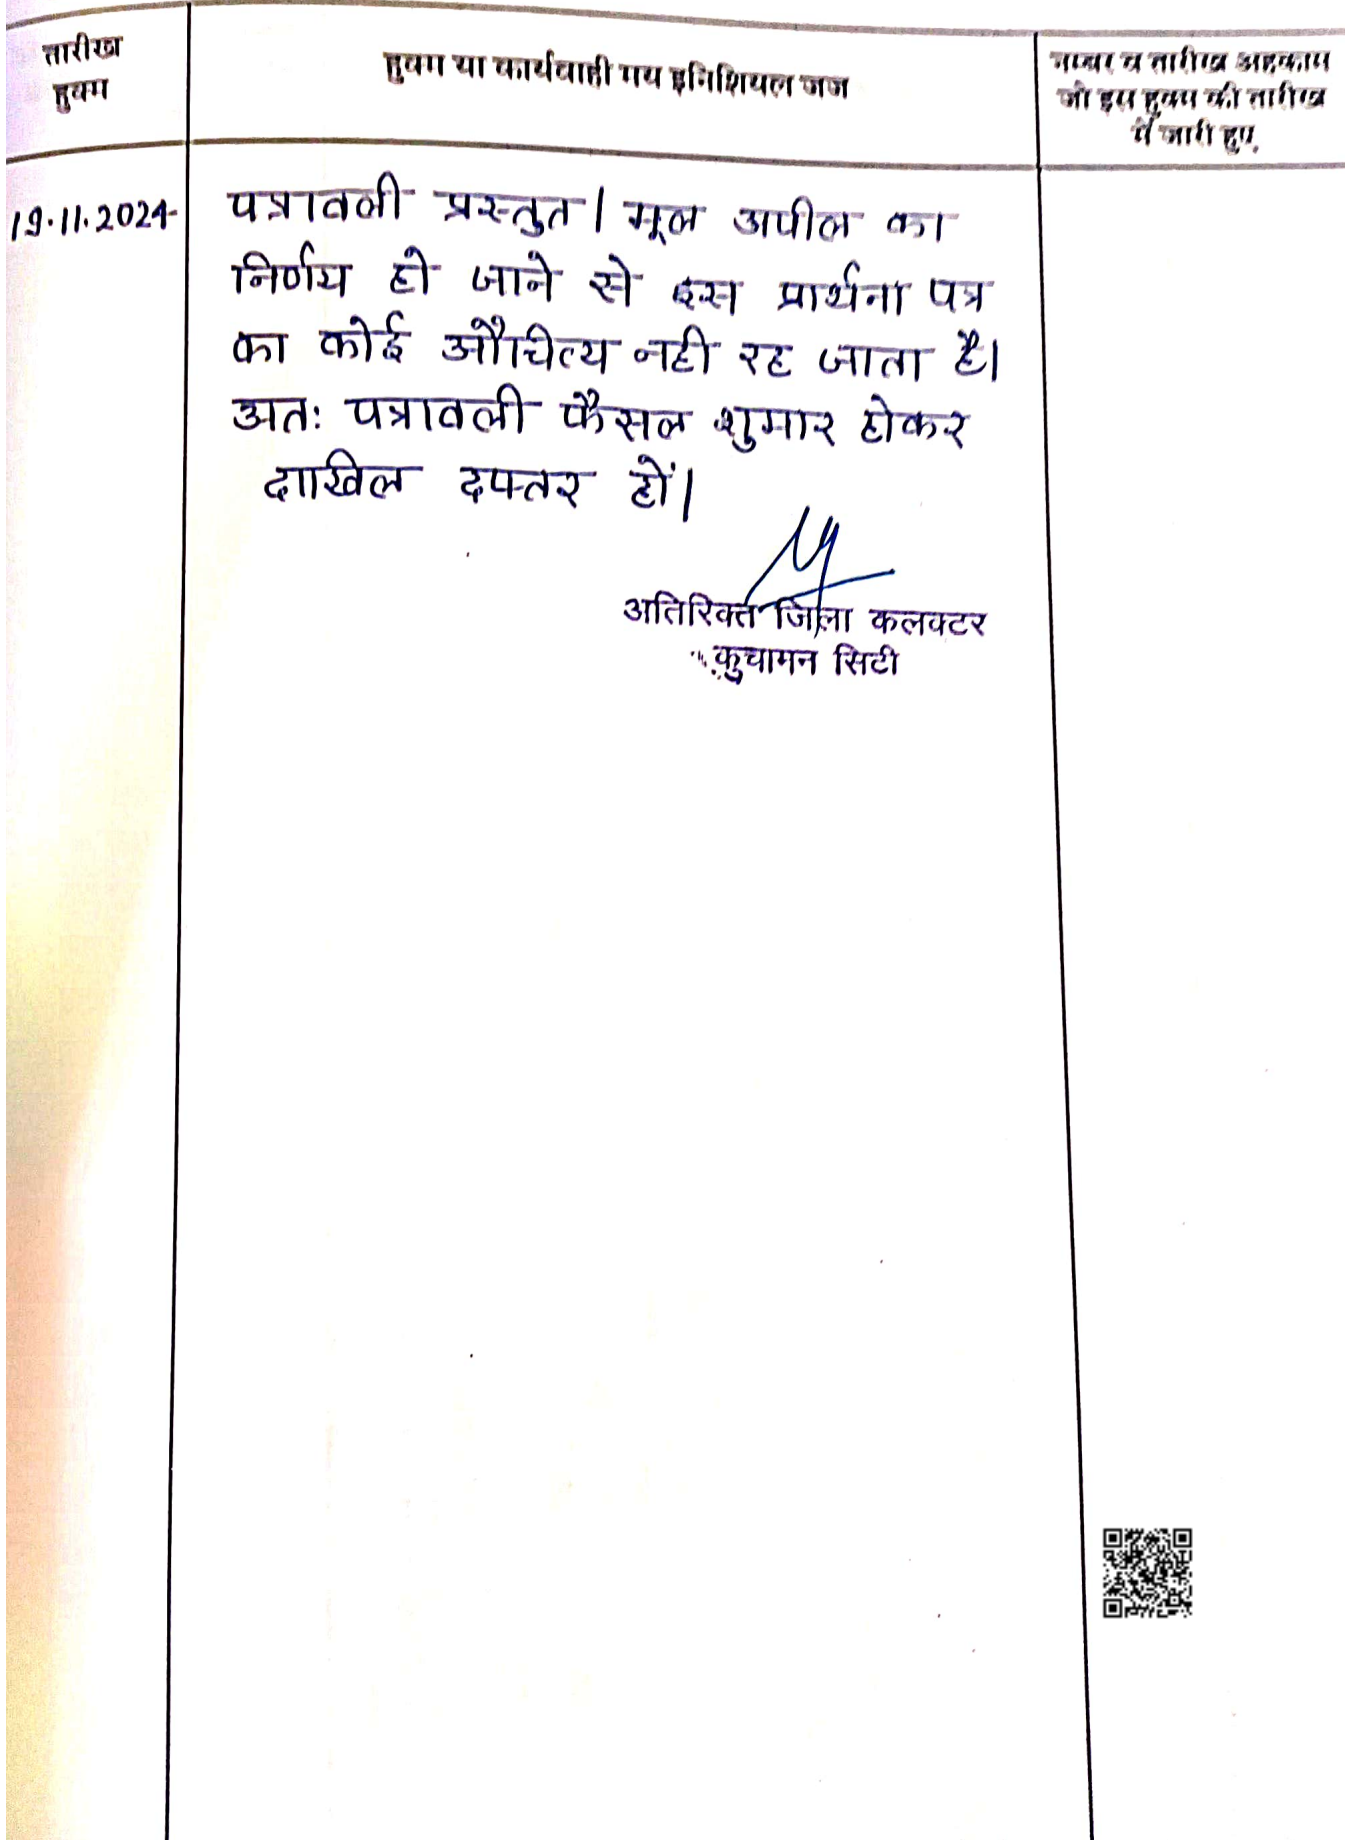 तारीख
हुक्म
हुक्म या कार्यवाही मय इनिशियल जज
नम्बर व तारीख अहकाम
जो इस हुक्म की तारीख
में जारी हुए
19.11.2024
पत्रावली प्रस्तुत। मूल अपील का
निर्णय हो जाने से इस प्रार्थना पत्र
का कोई औचित्य नही रह जाता है।
अतः पत्रावली फैसल शुमार होकर
दाखिल दफ्तर हों।
अतिरिक्त जिला कलक्टर
कुचामन सिटी